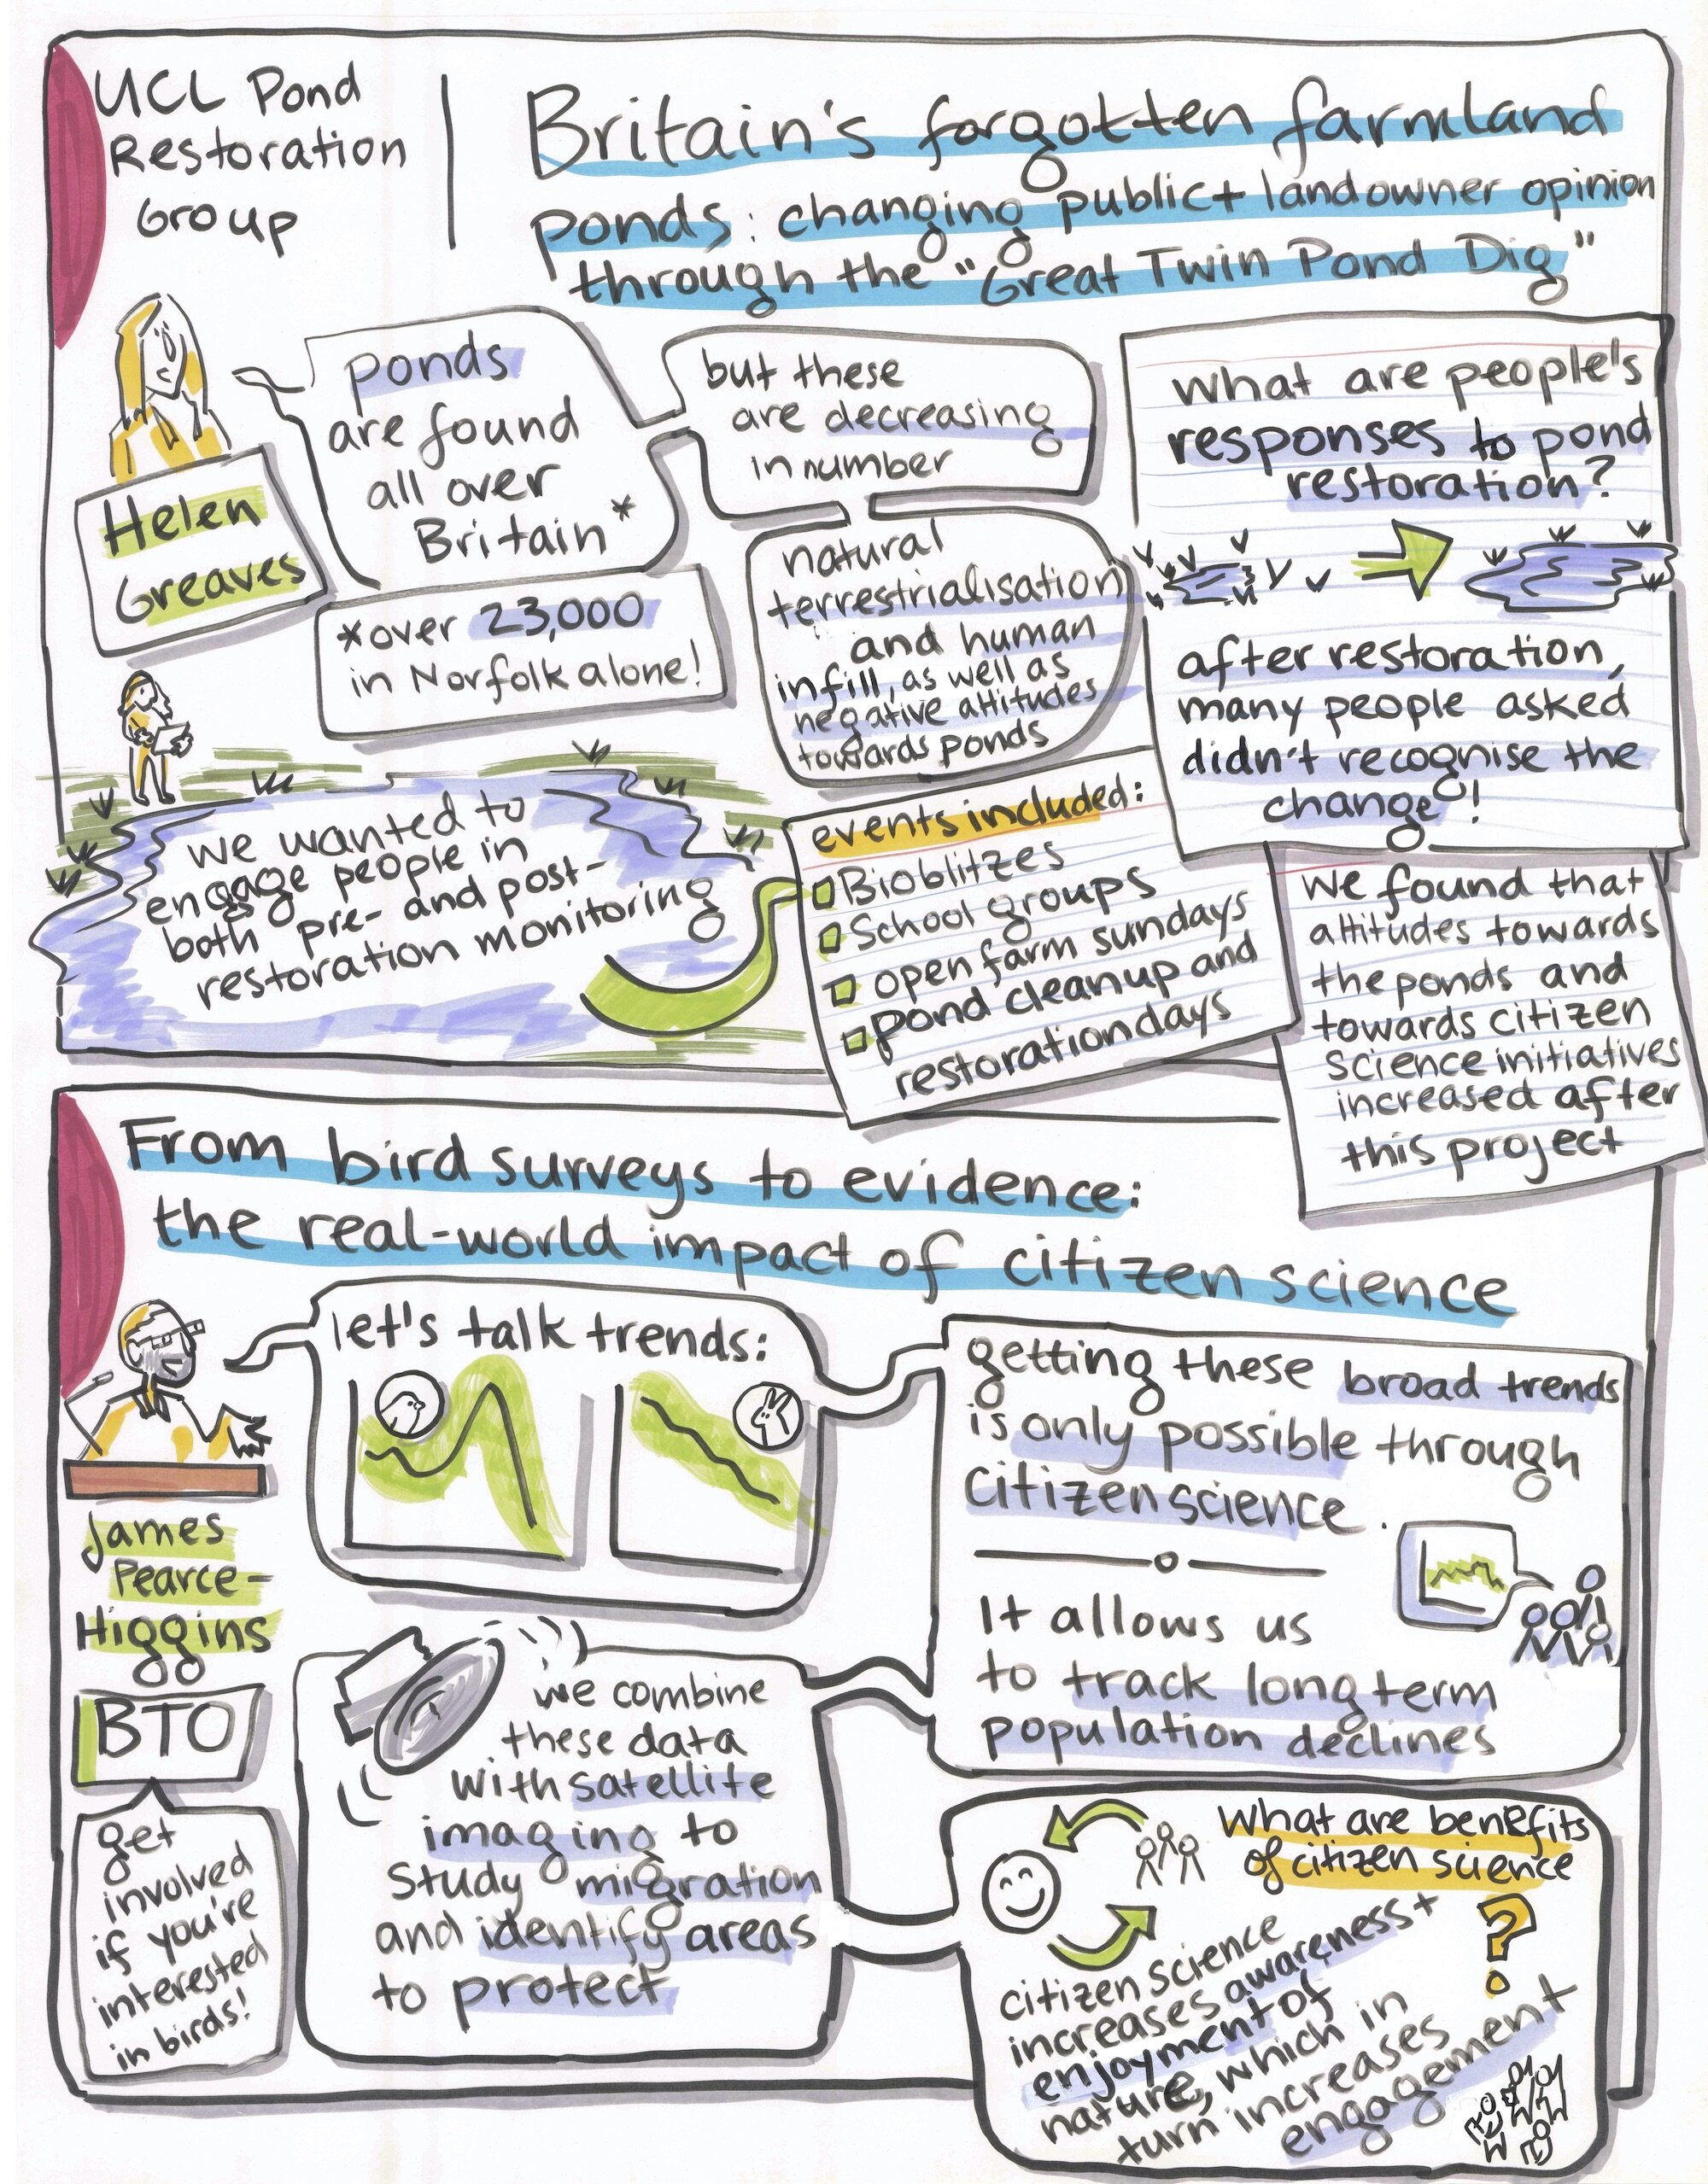 UCL Pond
Restoration
Group
Britain's forgotten farmland
ponds: changing public + landowner opinion
through the "Great Twin Pond Dig"
Helen
Greaves
ponds
are found
all over
Britain*
*over 23,000
in Norfolk alone!
but these
are decreasing
in number
natural
terrestrialisation
and human
infill, as well as
negative attitudes
towards ponds
What are people's
responses to pond
restoration?
after restoration,
many people asked
didn't recognise the
change!
we wanted to
engage people in
both pre- and post-
restoration monitoring
events included:
Bioblitzes
School groups
open farm sundays
pond cleanup and
restoration days
We found that
attitudes towards
the ponds and
towards citizen
science initiatives
increased after
this project
From bird surveys to evidence:
the real-world impact of citizen science
James
Pearce-
Higgins
BTO
get
involved
if you're
interested
in birds!
let's talk trends:
getting these broad trends
is only possible through
citizen science.
It allows us
to track long term
population declines
we combine
these data
with satellite
imaging to
study migration
and identify areas
to protect
What are benefits
of citizen science
?
citizen science
increases awareness +
enjoyment of
nature, which in
turn increases
engagement